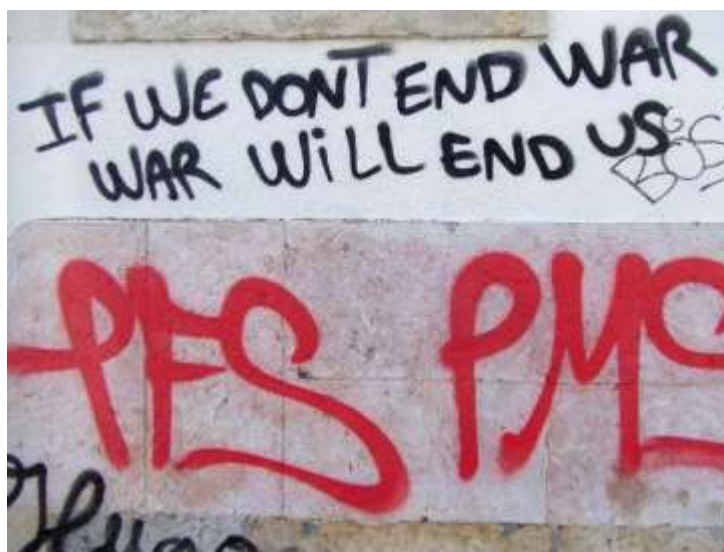 IF WE DONT END WAR
WAR WiLL END US
PES PMS
Hugo